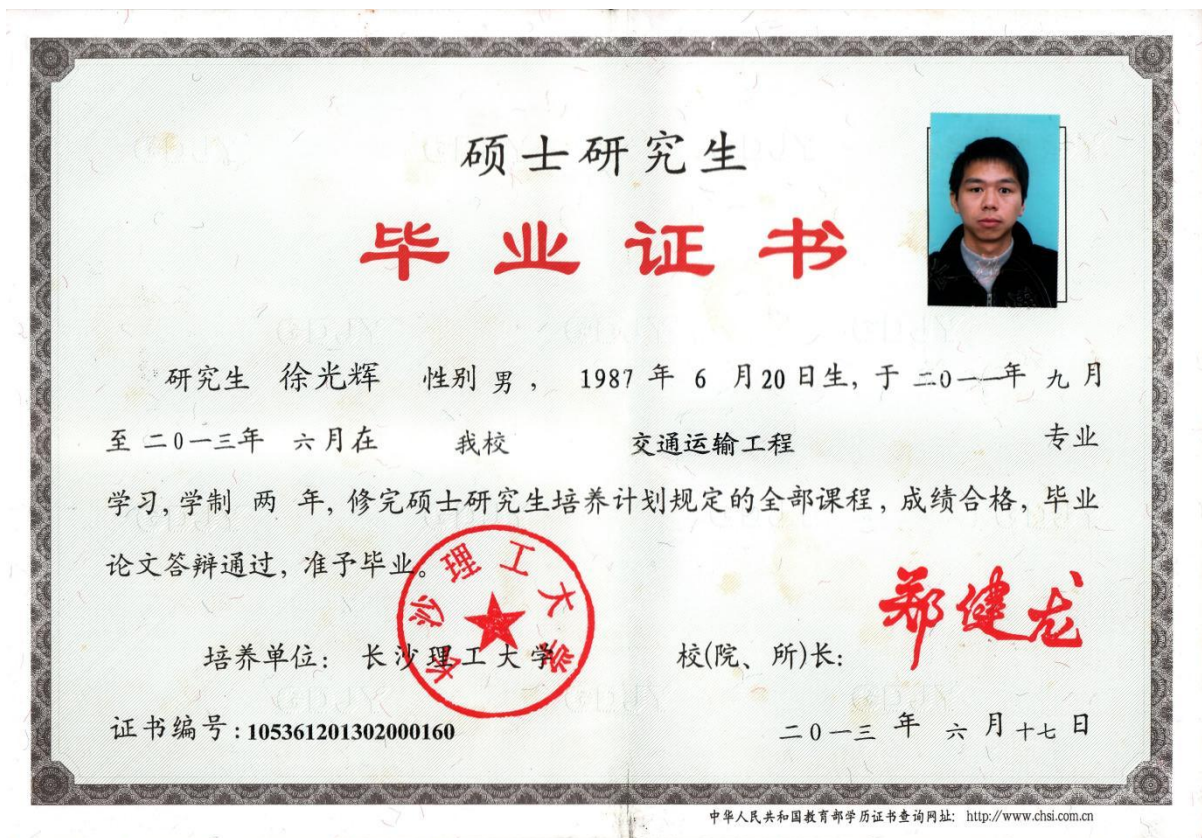 硕士研究生
毕业证书
研究生 徐光辉 性别 男， 1987 年 6 月 20 日生，于 二0一一年 九 月
至 二0一三年 六月在 我校 交通运输工程 专业
学习，学制 两 年，修完硕士研究生培养计划规定的全部课程，成绩合格，毕业
论文答辩通过，准予毕业。
长沙理工大学
郑健龙
培养单位： 长沙理工大学 校(院、所)长：
证书编号：105361201302000160 二0一三 年 六 月 十七 日
中华人民共和国教育部学历证书查询网址： http://www.chsi.com.cn